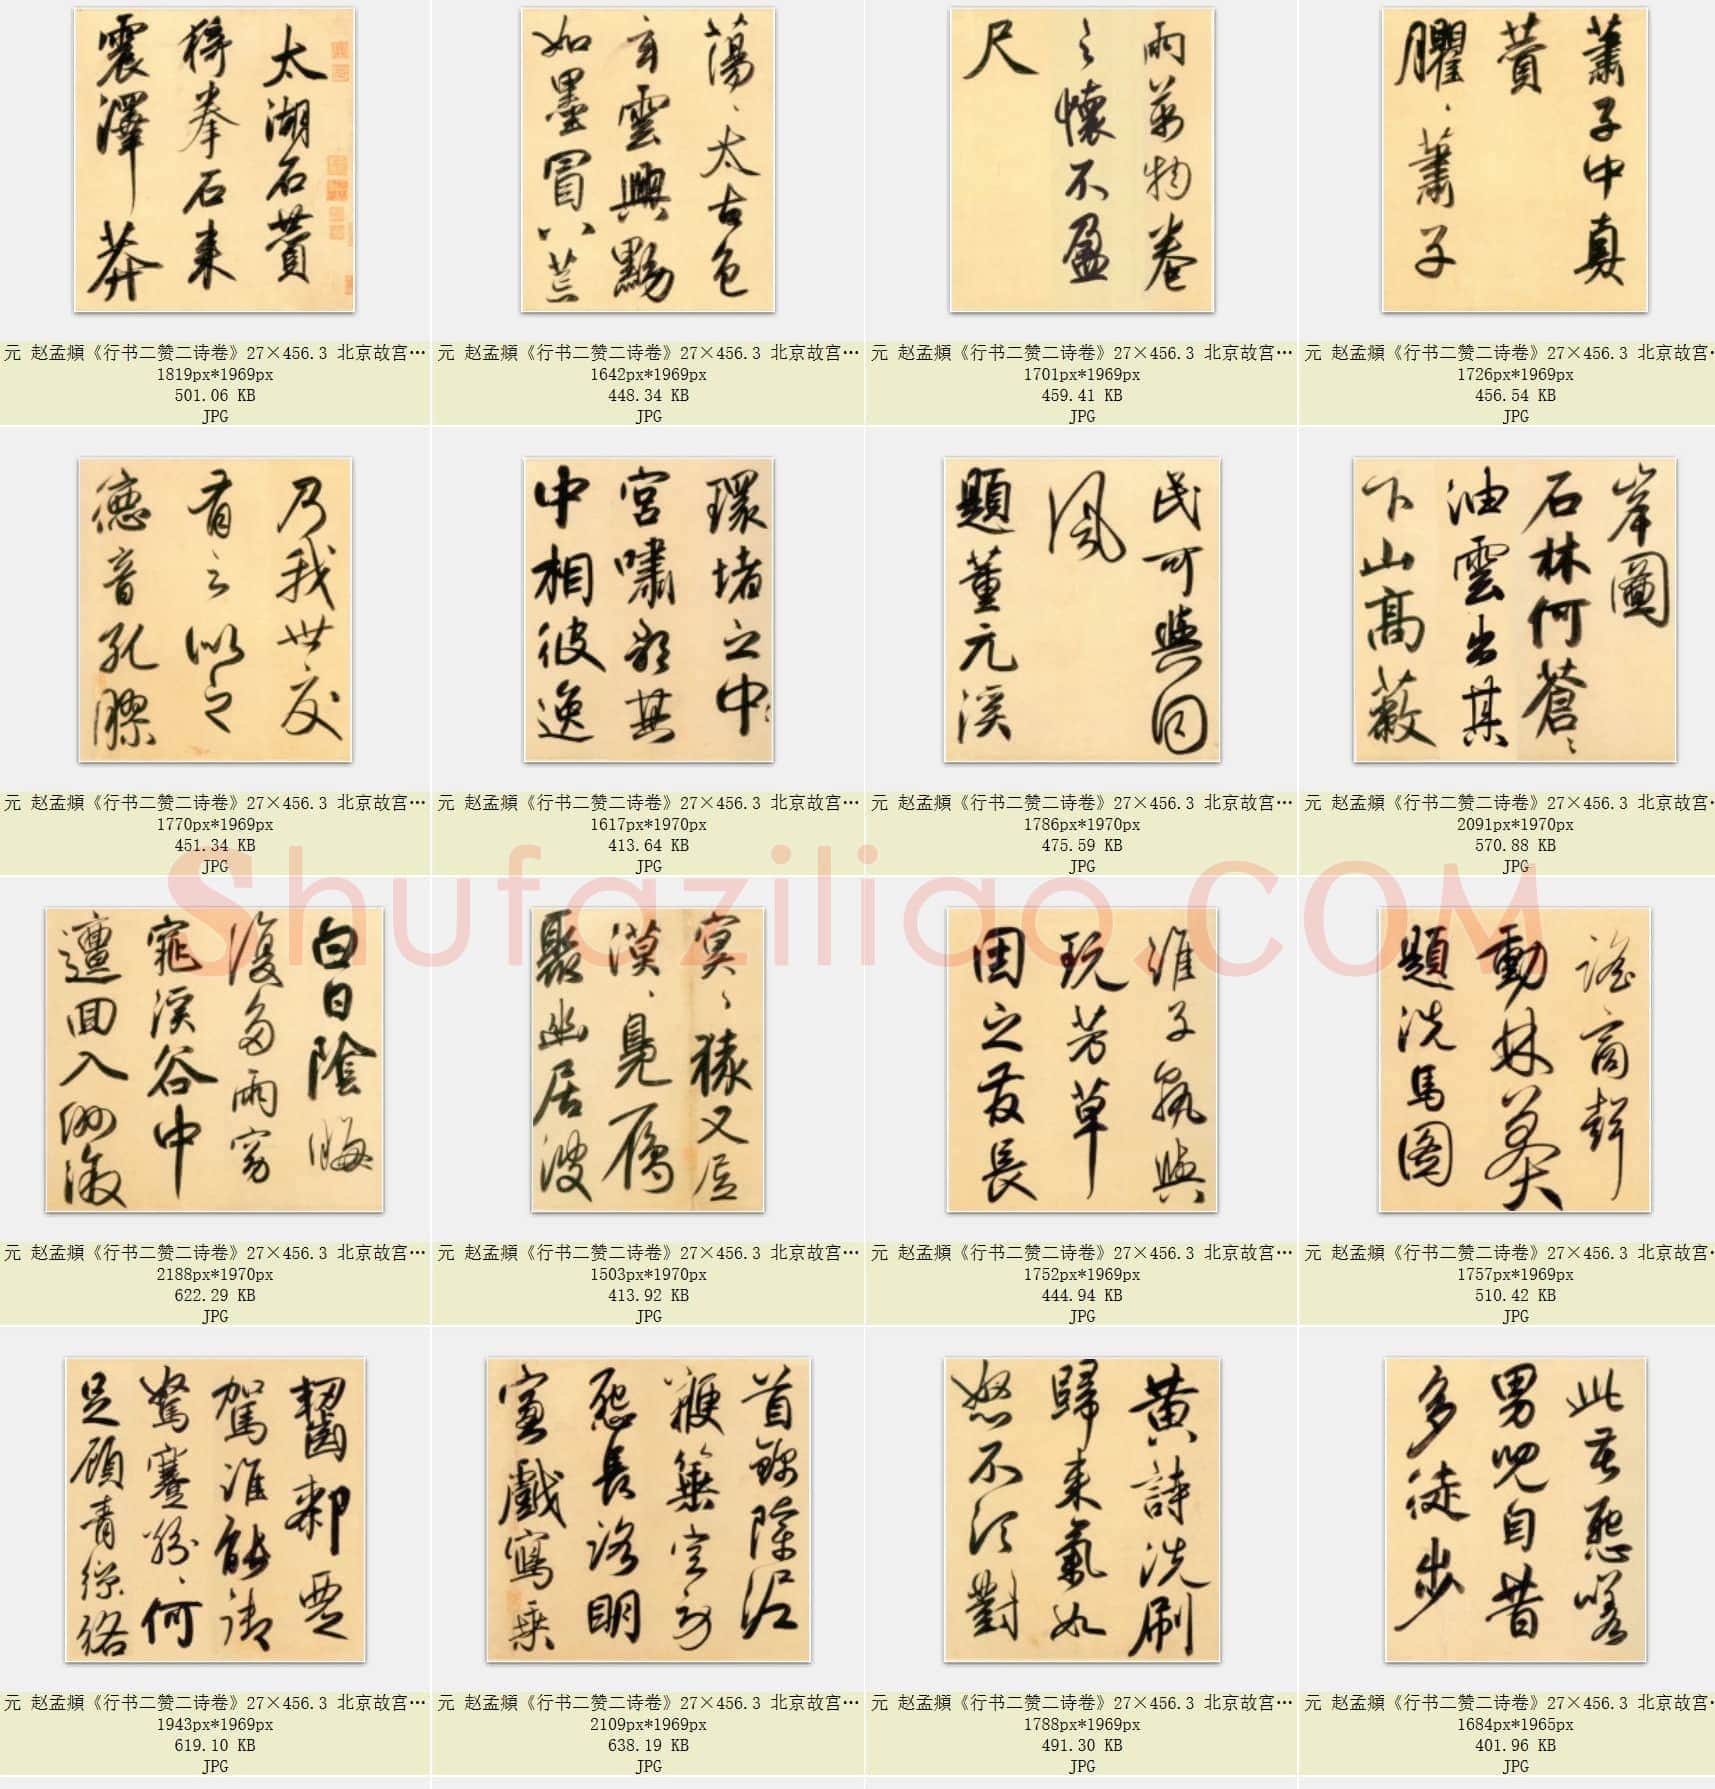 太湖石贊
猗拳石來
震澤莽
元 赵孟頫《行书二赞二诗卷》27×456.3 北京故宫…
1819px*1969px
501.06 KB
JPG
蕩々太古色
玄雲興黝
如墨冒八荒
元 赵孟頫《行书二赞二诗卷》27×456.3 北京故宫…
1642px*1969px
448.34 KB
JPG
雨萬物卷
之懷不盈
尺
元 赵孟頫《行书二赞二诗卷》27×456.3 北京故宫…
1701px*1969px
459.41 KB
JPG
蕭子中真
贊
臞々蕭子
元 赵孟頫《行书二赞二诗卷》27×456.3 北京故宫…
1726px*1969px
456.54 KB
JPG
乃我世交
有之似之
德音孔膠
元 赵孟頫《行书二赞二诗卷》27×456.3 北京故宫…
1770px*1969px
451.34 KB
JPG
環堵之中
宮嘯歌無
中相彼逸
元 赵孟頫《行书二赞二诗卷》27×456.3 北京故宫…
1617px*1970px
413.64 KB
JPG
民可與同
風
題董元溪
元 赵孟頫《行书二赞二诗卷》27×456.3 北京故宫…
1786px*1970px
475.59 KB
JPG
岸圖
石林何蒼々
油雲出其
下山高蔽
元 赵孟頫《行书二赞二诗卷》27×456.3 北京故宫…
2091px*1970px
570.88 KB
JPG
Shufaziliao.COM
白日陰晦
復多雨窮
窕溪谷中
邅回入洲漵
元 赵孟頫《行书二赞二诗卷》27×456.3 北京故宫…
2188px*1970px
622.29 KB
JPG
冥々猿又居
漠々鳧雁
聚幽居彼
元 赵孟頫《行书二赞二诗卷》27×456.3 北京故宫…
1503px*1970px
413.92 KB
JPG
誰子孰與
玩芳草
因之發長
元 赵孟頫《行书二赞二诗卷》27×456.3 北京故宫…
1752px*1969px
444.94 KB
JPG
謠商聲
動林莽
題洗馬圖
元 赵孟頫《行书二赞二诗卷》27×456.3 北京故宫…
1757px*1969px
510.42 KB
JPG
齧 要
駕誰能御
駑蹇紛々何
足顧青絲絡
元 赵孟頫《行书二赞二诗卷》27×456.3 北京故宫…
1943px*1969px
619.10 KB
JPG
首錦障泥
鞭箠空
怨長路明
窗戲寫乘
元 赵孟頫《行书二赞二诗卷》27×456.3 北京故宫…
2109px*1969px
638.19 KB
JPG
黃詩洗刷
歸來氣如
怒不須對
元 赵孟頫《行书二赞二诗卷》27×456.3 北京故宫…
1788px*1969px
491.30 KB
JPG
此苦怨嗟
男兒自昔
多徒步
元 赵孟頫《行书二赞二诗卷》27×456.3 北京故宫…
1684px*1965px
401.96 KB
JPG